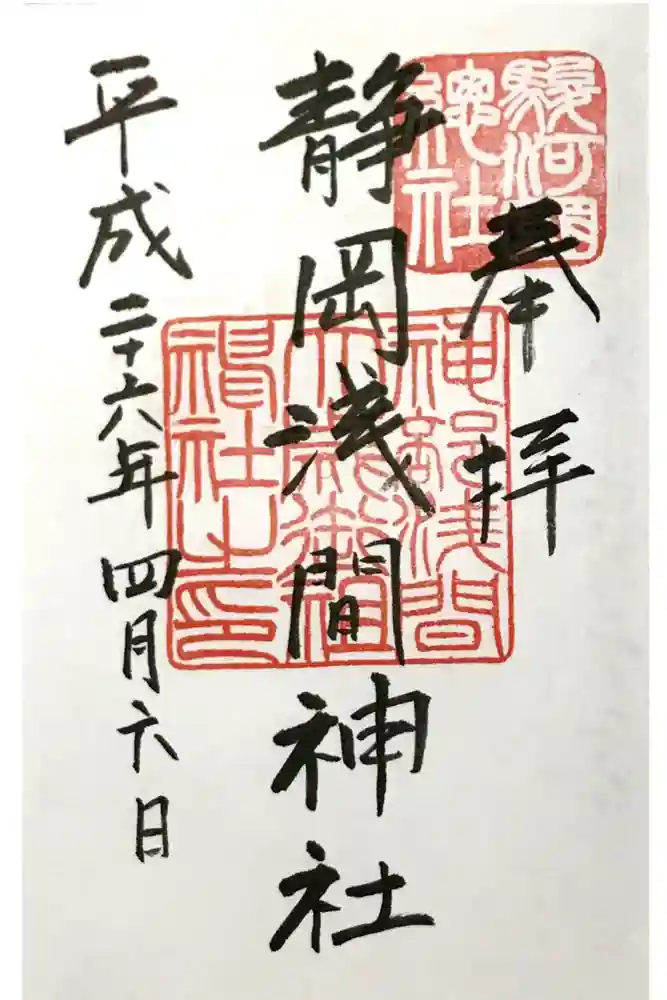 駿河國
總社
奉拝
静岡浅間神社
神部浅間
大歳御祖
神社之印
平成二十六年四月六日